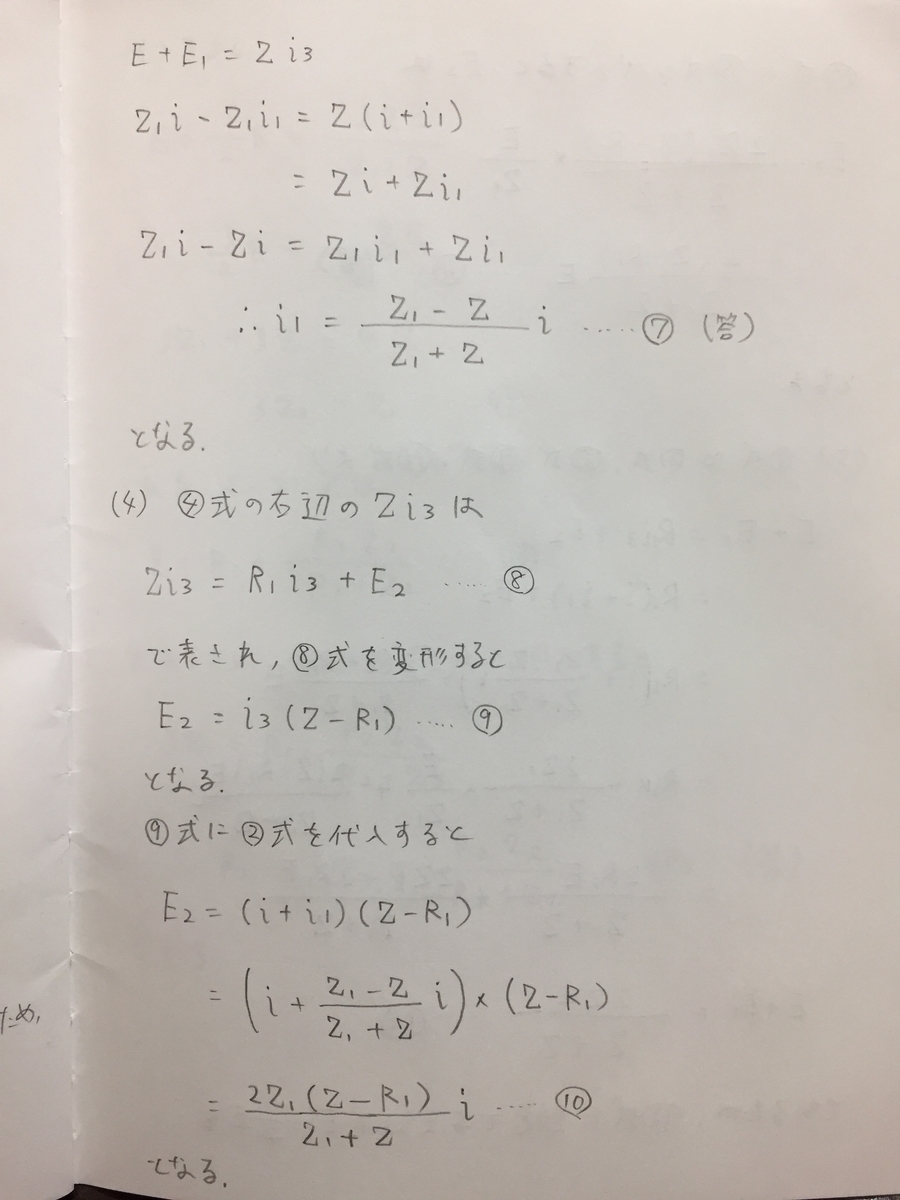 E + E₁ = Z i₃
Z₁i - Z₁i₁ = Z (i + i₁)
= Zi + Zi₁
Z₁i - Zi = Z₁i₁ + Zi₁
∴ i₁ = (Z₁ - Z)/(Z₁ + Z) i ‥‥‥ ⑦ (答)
となる.
(4) ④式の右辺の Zi₃ は
Zi₃ = R₁i₃ + E₂ ‥‥‥ ⑧
で表され, ⑧式を変形すると
E₂ = i₃ (Z - R₁) ‥‥‥ ⑨
となる.
⑨式に②式を代入すると
E₂ = (i + i₁) (Z - R₁)
= (i + (Z₁ - Z)/(Z₁ + Z) i) × (Z - R₁)
= 2Z₁ (Z - R₁)/(Z₁ + Z) i ‥‥‥ ⑩
となる.
ため,